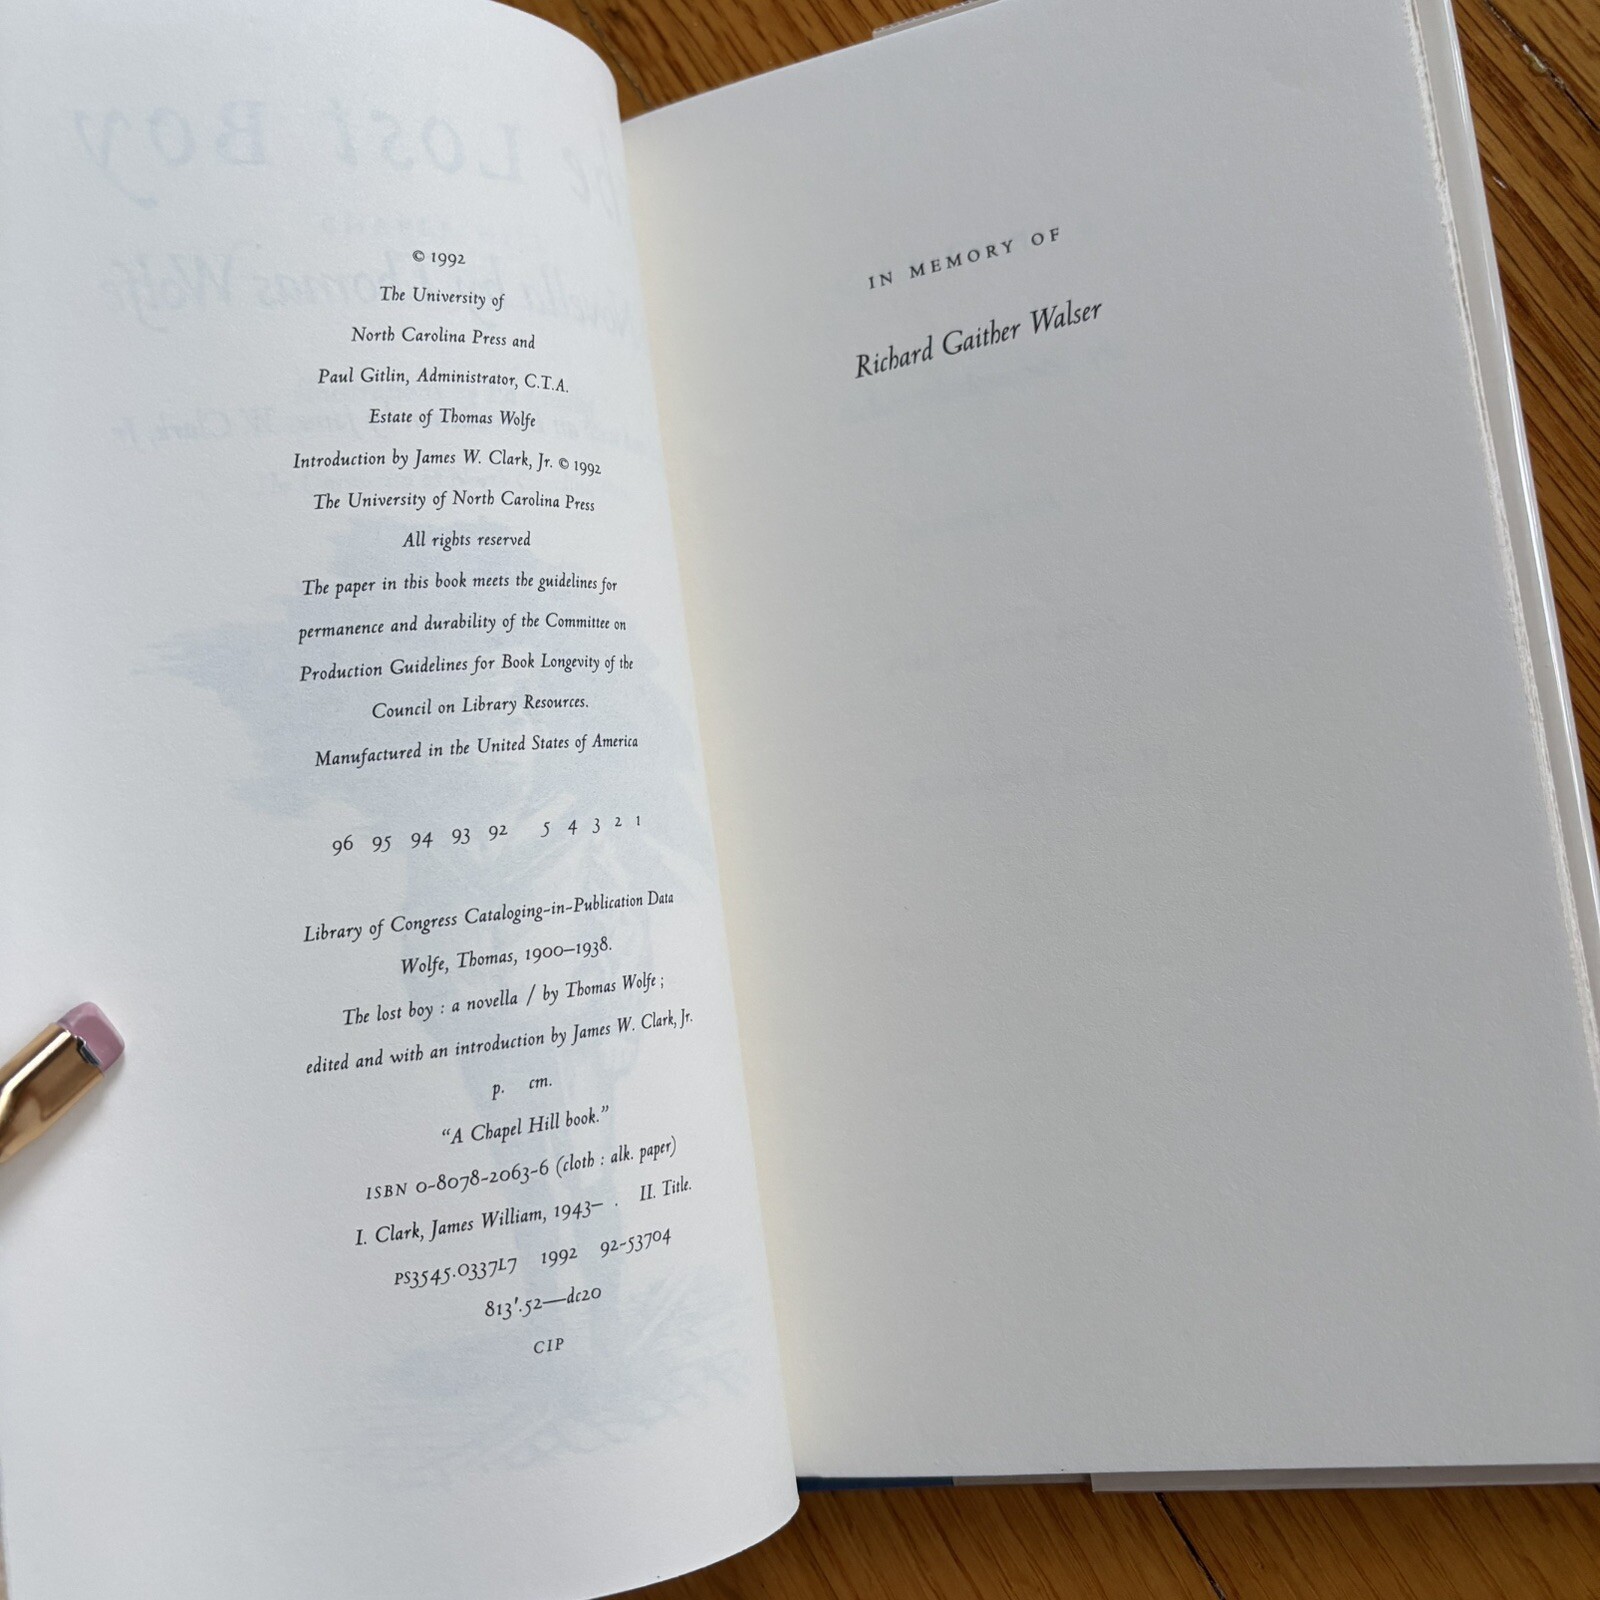 © 1992
The University of
North Carolina Press and
Paul Gitlin, Administrator, C.T.A.
Estate of Thomas Wolfe
Introduction by James W. Clark, Jr. © 1992
The University of North Carolina Press
All rights reserved
The paper in this book meets the guidelines for
permanence and durability of the Committee on
Production Guidelines for Book Longevity of the
Council on Library Resources.
Manufactured in the United States of America
96 95 94 93 92 5 4 3 2 1
Library of Congress Cataloging-in-Publication Data
Wolfe, Thomas, 1900–1938.
The lost boy : a novella / by Thomas Wolfe ;
edited and with an introduction by James W. Clark, Jr.
p. cm.
“A Chapel Hill book.”
ISBN 0-8078-2063-6 (cloth : alk. paper)
I. Clark, James William, 1943– . II. Title.
PS3545.O337L7 1992 92-53704
813'.52—dc20
CIP
IN MEMORY OF
Richard Gaither Walser